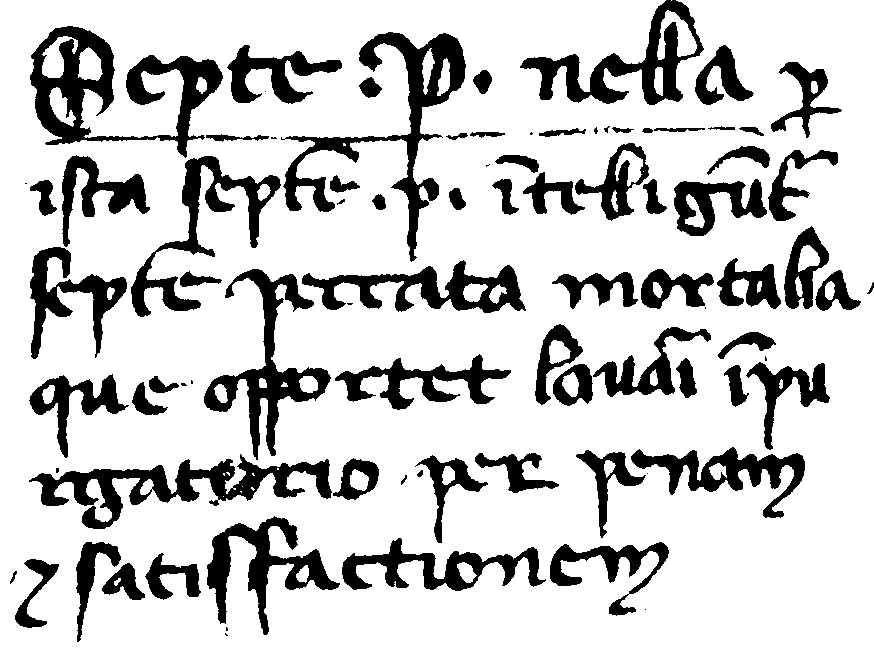 Septe .P. nella ꝑ
ista septē .p. ītelligūtᷣ
septē peccata mortalia.
que opportet lauāi īpu
rgatorio per penam
⁊ satisfactionem